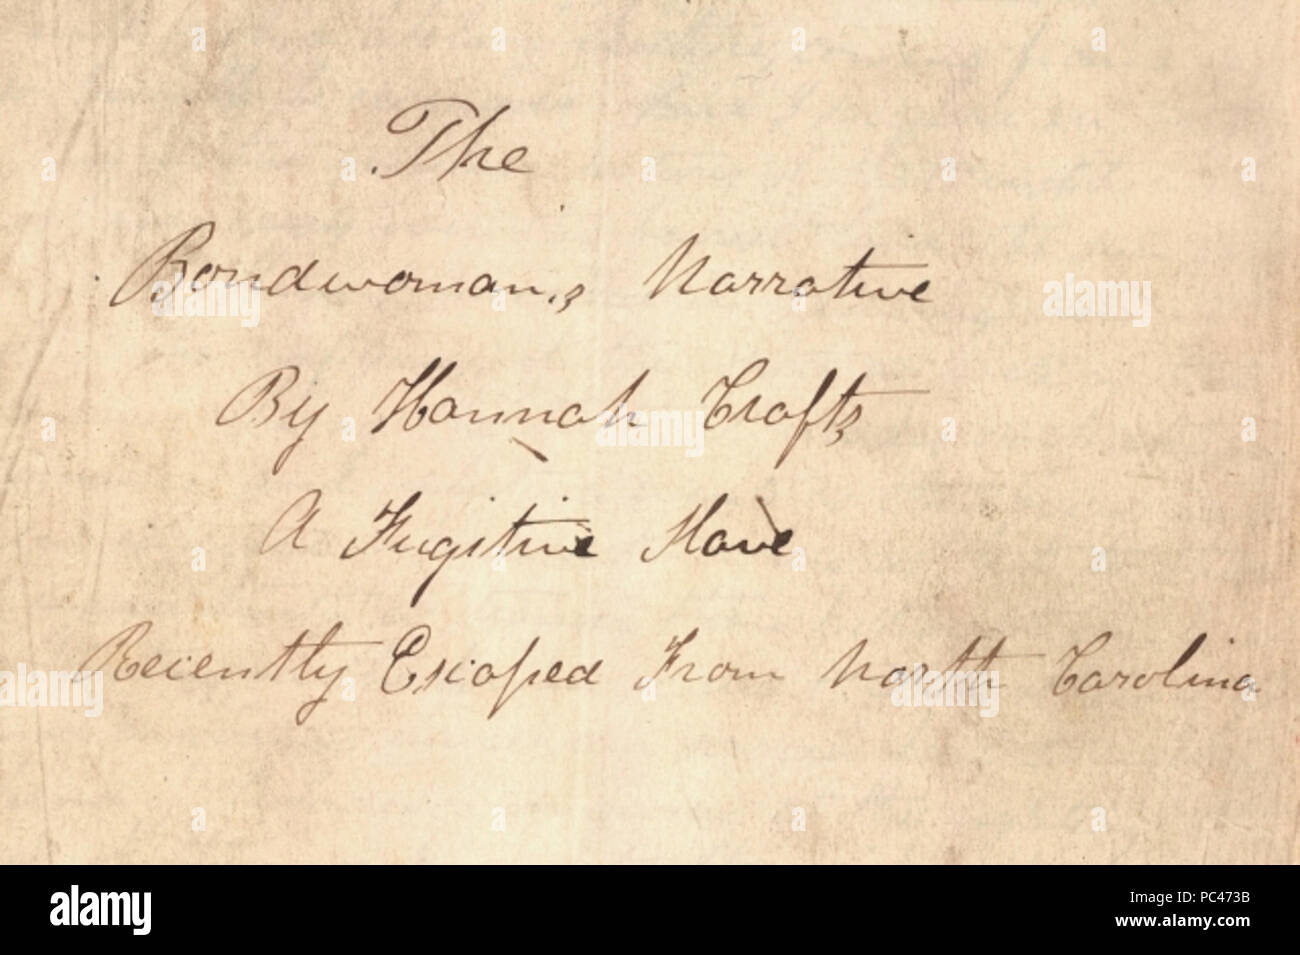 The
Bondwoman,s Narrative
By Hannah Crafts
A Fugitive Slave
Recently Escaped From North Carolina
alamy
Image ID: PC473B
www.alamy.com